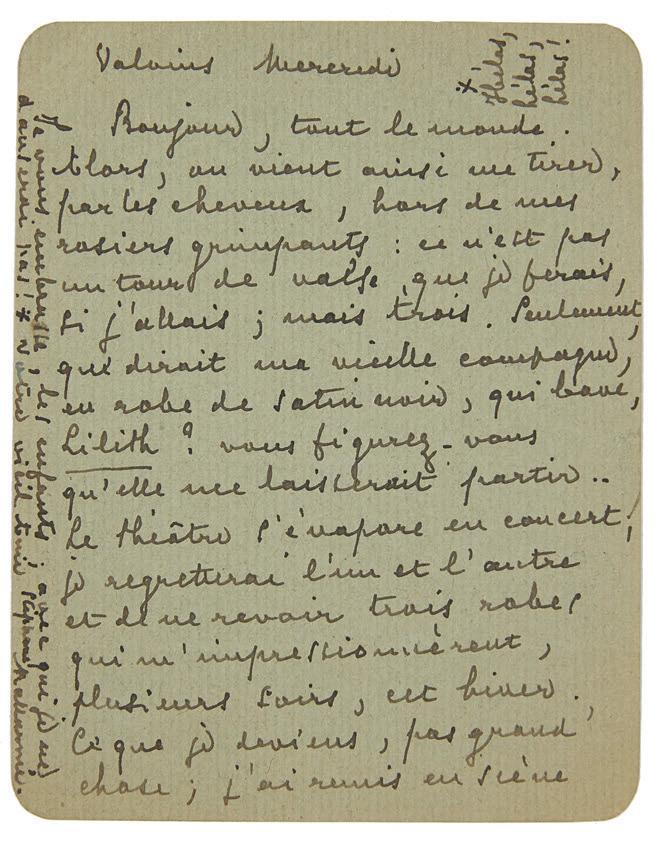 Valvins Mercredi
Bonjour, tout le monde.
Alors, on vient ainsi me tirer,
par les cheveux, hors de mes
rosiers grimpants : ce n'est pas
un tour de valse, que je ferais,
si j'allais ; mais trois. Seulement,
que dirait ma vieille compagne,
en robe de satin noir, qui bave,
Lilith ? vous figurez-vous
qu'elle me laisserait partir..
Le théâtre s'évapore en concert ;
je regretterai l'un et l'autre
et de ne revoir trois robes
qui m'impressionnèrent,
plusieurs soirs, cet hiver.
Ce que je deviens, pas grand'
chose ; j'ai remis en scène
Je vous embrasse, les enfants ; avec qui je ne
danserai pas ! * Votre vieil ami Stéphane Mallarmé.
* Hélas,
hélas,
hélas !